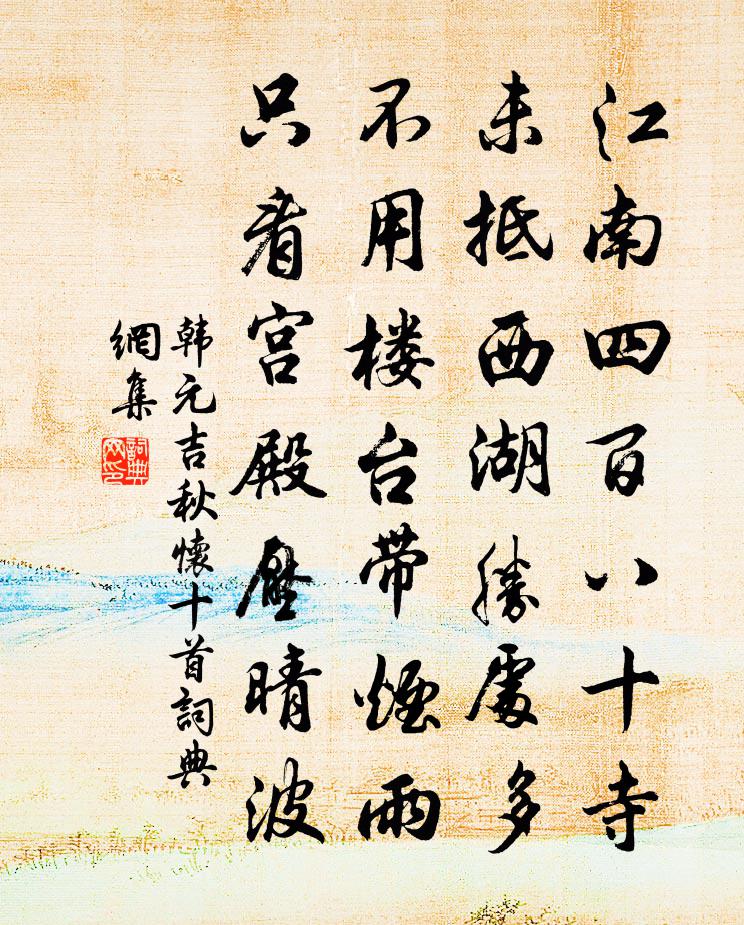 江南四百八十寺
未抵西湖勝處多
不用楼台带煙雨
只看宫殿壓晴波
韩元吉秋懷十首詞典
網集
詞典
网印